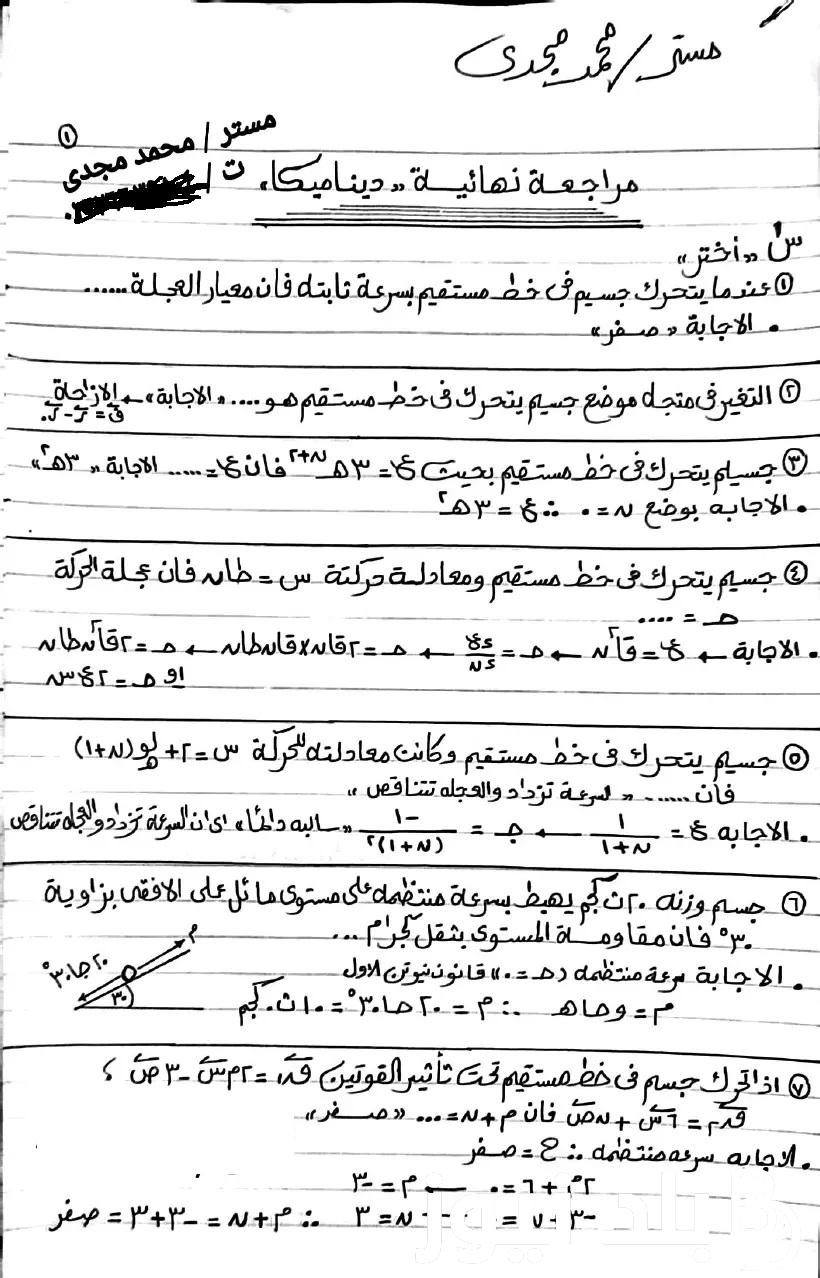 مستر / محمد مجدى
①
مستر / محمد مجدى
ت /
مراجعة نهائية «ديناميكا»
س١ «أختر»
① عندما يتحرك جسيم فى خط مستقيم بسرعة ثابته فان معيار العجلة ......
• الاجابة «صفر»
② التغير فى متجه موضع جسيم يتحرك فى خط مستقيم هو .... «الاجابة» ← الازاحة
ف = ر - ر.
③ جسيم يتحرك فى خط مستقيم بحيث ع = ٣هـ^(ن+٢) فان ع. = ..... الاجابة «٣هـ٢»
• الاجابه بوضع ن = ٠ ∴ ع = ٣هـ٢
④ جسيم يتحرك فى خط مستقيم ومعادلة حركتة س = طان فان عجلة الحركة
حـ = ....
• الاجابة ← ع = قا٢ن ← حـ = ءع/ءن ← حـ = ٢قان×قان طان ← حـ = ٢قا٢ن طان
او حـ = ٢ع س
⑤ جسيم يتحرك فى خط مستقيم وكانت معادلته للحركة س = ٢ + لو(ن+١)
فان ...... «لسرعة تزداد والعجله تتناقص»
• الاجابه ع = ١/(ن+١) ← جـ = -١/(ن+١)٢ «سالبه دائما» اى ان السرعة تزداد والعجله تتناقص
⑥ جسم وزنه ٢٠ ث كجم يهبط بسرعة منتظمه على مستوى مائل على الافقى بزاوية
٣٠° فان مقاومة المستوى بثقل كجرام ...
• الاجابة سرعة منتظمه (حـ = ٠) قانون نيوتن الاول
م = و حا هـ ∴ م = ٢٠ حا ٣٠° = ١٠ ث. كجم
م
٢٠ حا ٣٠°
٣٠
⑦ اذا تحرك جسم فى خط مستقيم تحت تأثير القوتين ق١ = ٢م س - ٣ ص ،
ق٢ = ٦س + ن ص فان م + ن = ... «صفر»
• الاجابه سرعه منتظمه ∴ ح = صفر
٢م + ٦ = ٠ ← م = -٣
-٣ + ن = ٠ ← ن = ٣ ∴ م + ن = -٣ + ٣ = صفر
بلد نيوز